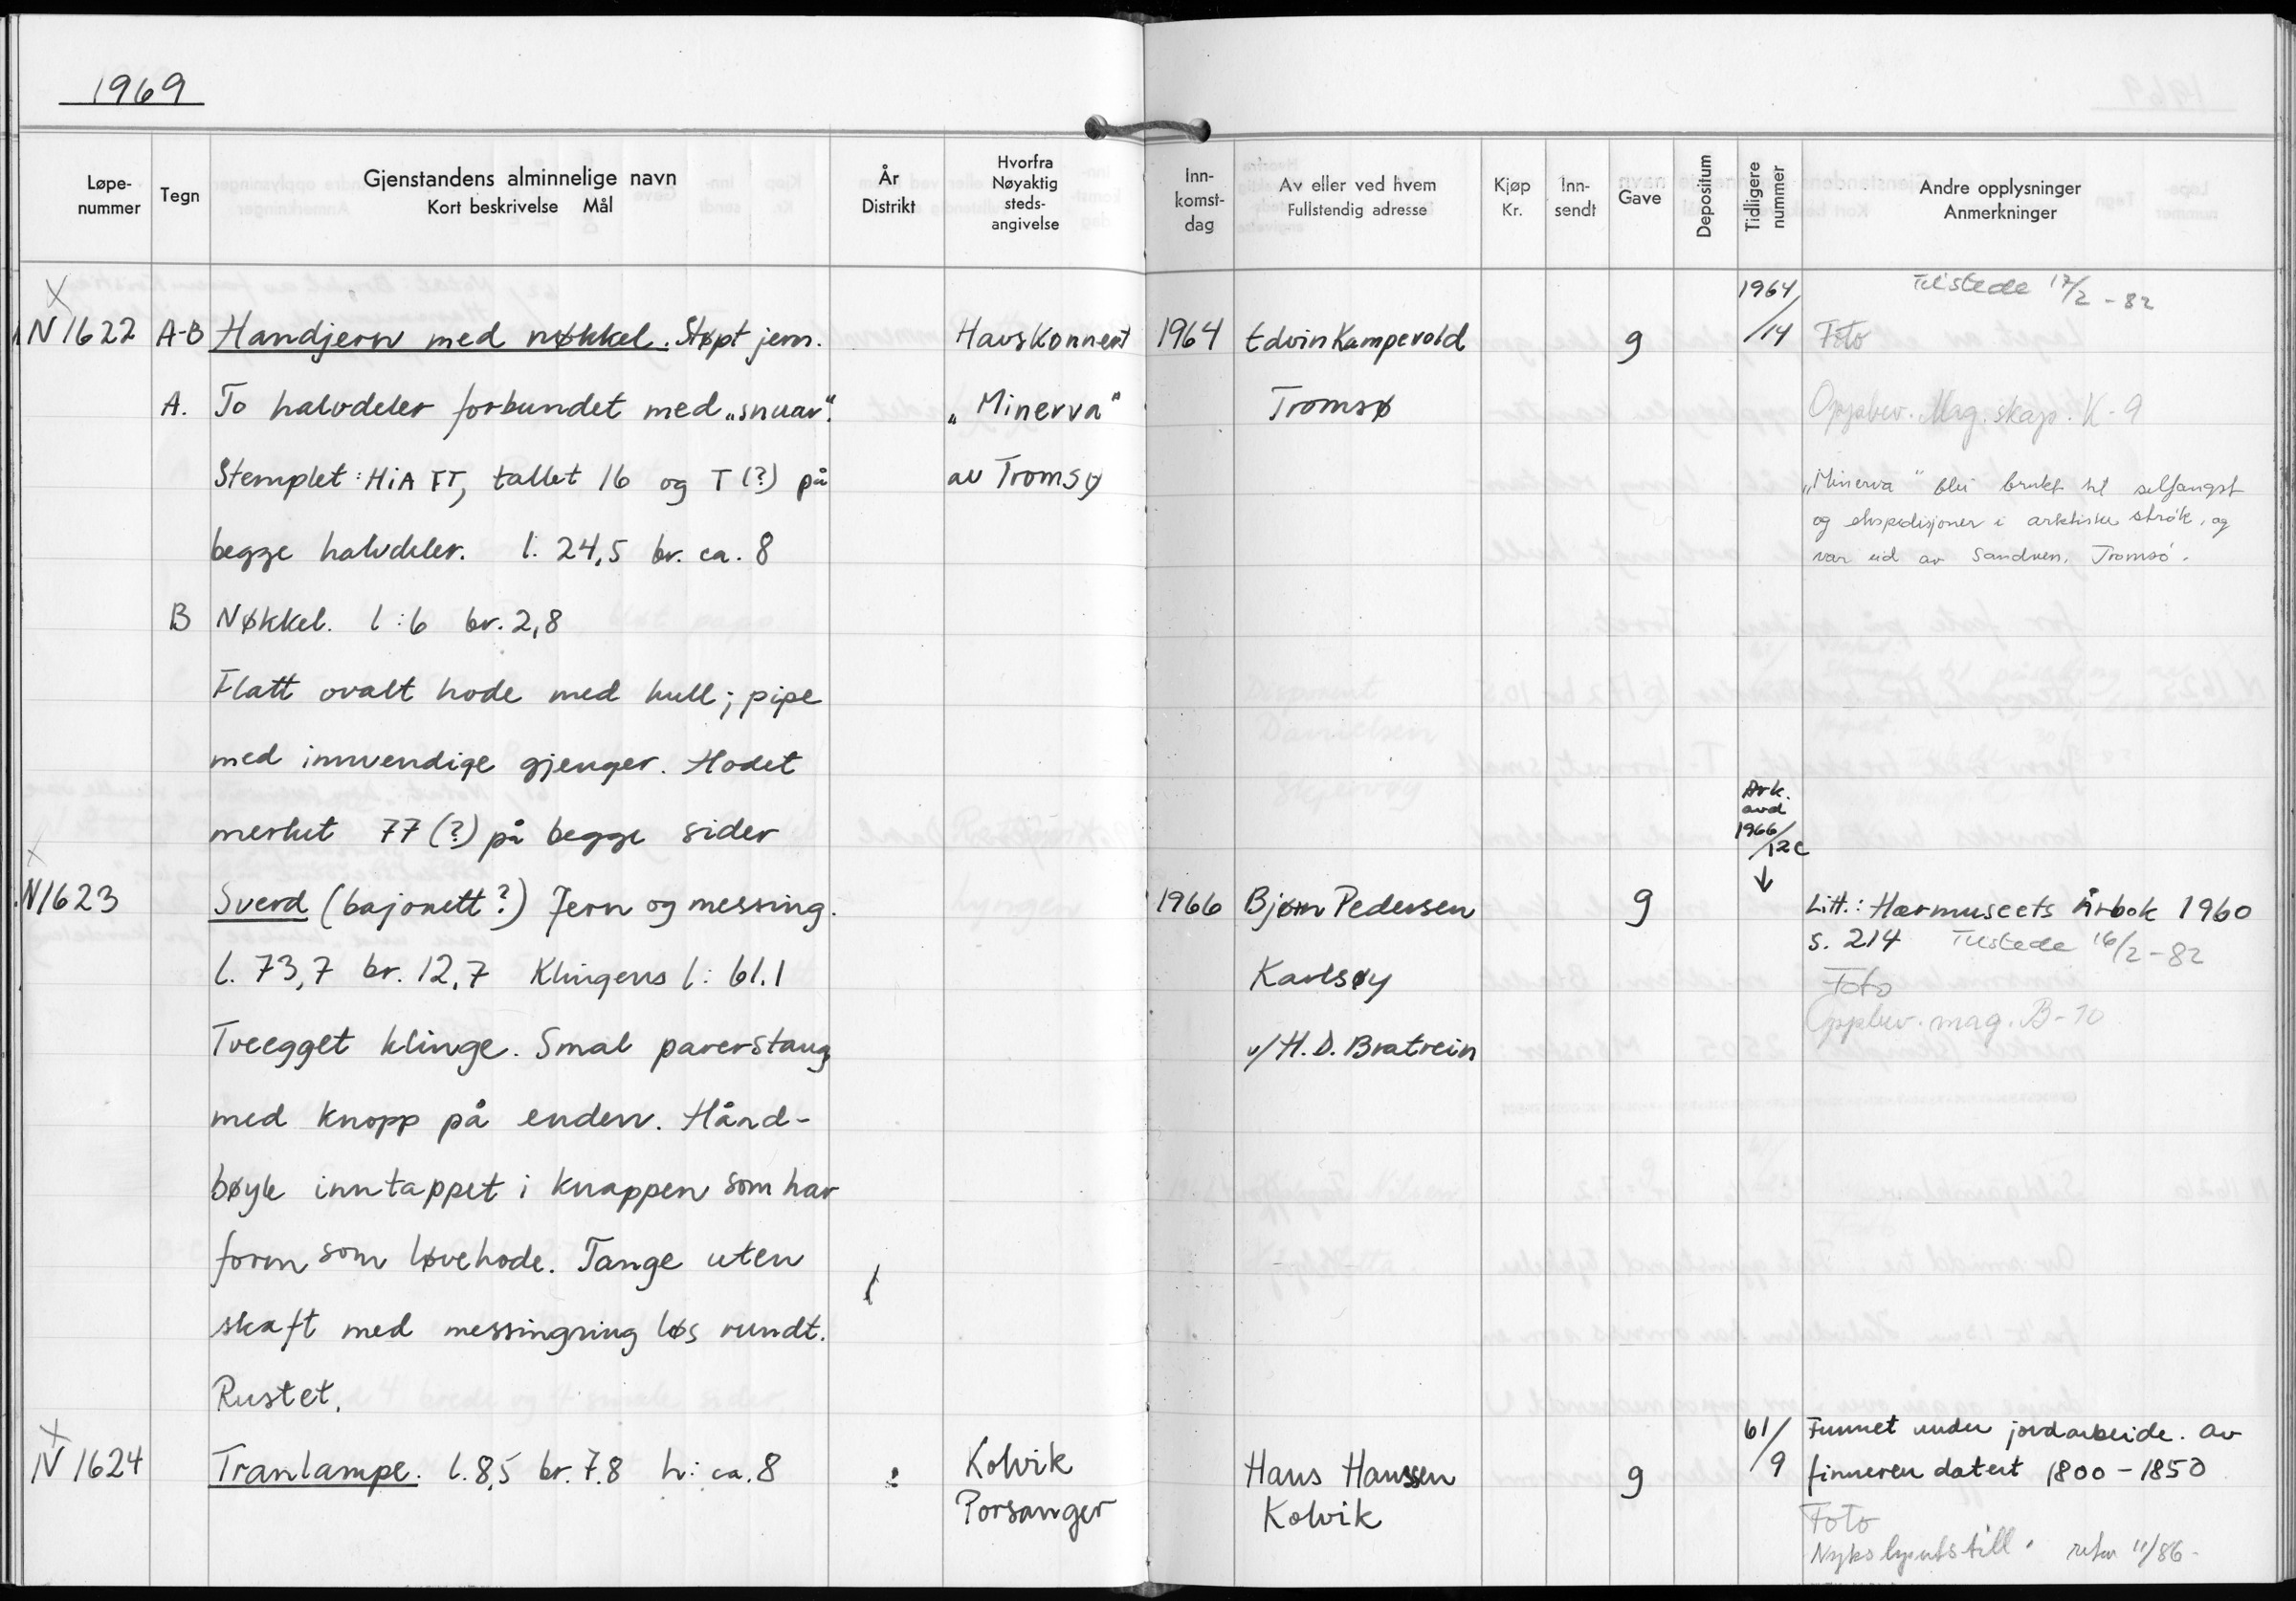 1969
Løpe-
nummer
Tegn
Gjenstandens alminnelige navn
Kort beskrivelse Mål
År
Distrikt
Hvorfra
Nøyaktig
steds-
angivelse
Inn-
komst-
dag
Av eller ved hvem
Fullstendig adresse
Kjøp
Kr.
Inn-
sendt
Gave
Depositum
Tidligere
nummer
Andre opplysninger
Anmerkninger
X
N 1622 A-B Handjern med nøkkel. Støpt jern.
A. To halvdeler forbundet med „snuar".
Stemplet: HiATT, tallet 16 og T (?) på
begge halvdeler. l. 24,5 br. ca. 8
B Nøkkel. l: 6 br. 2,8
Flatt ovalt hode med hull; pipe
med innvendige gjenger. Hodet
merket 77 (?) på begge sider
Havskonnert
„Minerva"
av Tromsø
1964 Edvin Kampevold
Tromsø
g
1964/
/14
Tilstede 17/2 - 82
Foto
Oppbev. Mag. skap. K-9
„Minerva" blei brukt til selfangst
og ekspedisjoner i arktiske strøk, og
var eid av Sandven, Tromsø.
X
N1623 Sverd (bajonett?) Jern og messing.
l. 73,7 br. 12,7 Klingens l: 61.1
Tveegget klinge. Smal parerstang
med knopp på enden. Hånd-
bøyle inntappet i knappen som har
form som løvehode. Tange uten
skaft med messingring løs rundt.
Rustet.
1966 Bjørn Pedersen
Karlsøy
v/ H. D. Bratrein
g
Ark.
avd
1966/
/12c
↓
Litt.: Hærmuseets Årbok 1960
s. 214 Tilstede 16/2 - 82
Foto
Oppbev. mag. B-10
X
N 1624 Tranlampe. l. 8,5 br. 7,8 h: ca. 8
Kolvik
Porsanger
Hans Hanssen
Kolvik
g
61/
/9
Funnet under jordarbeide. Av
finneren datert 1800 - 1850
Foto
retur 11/86 -